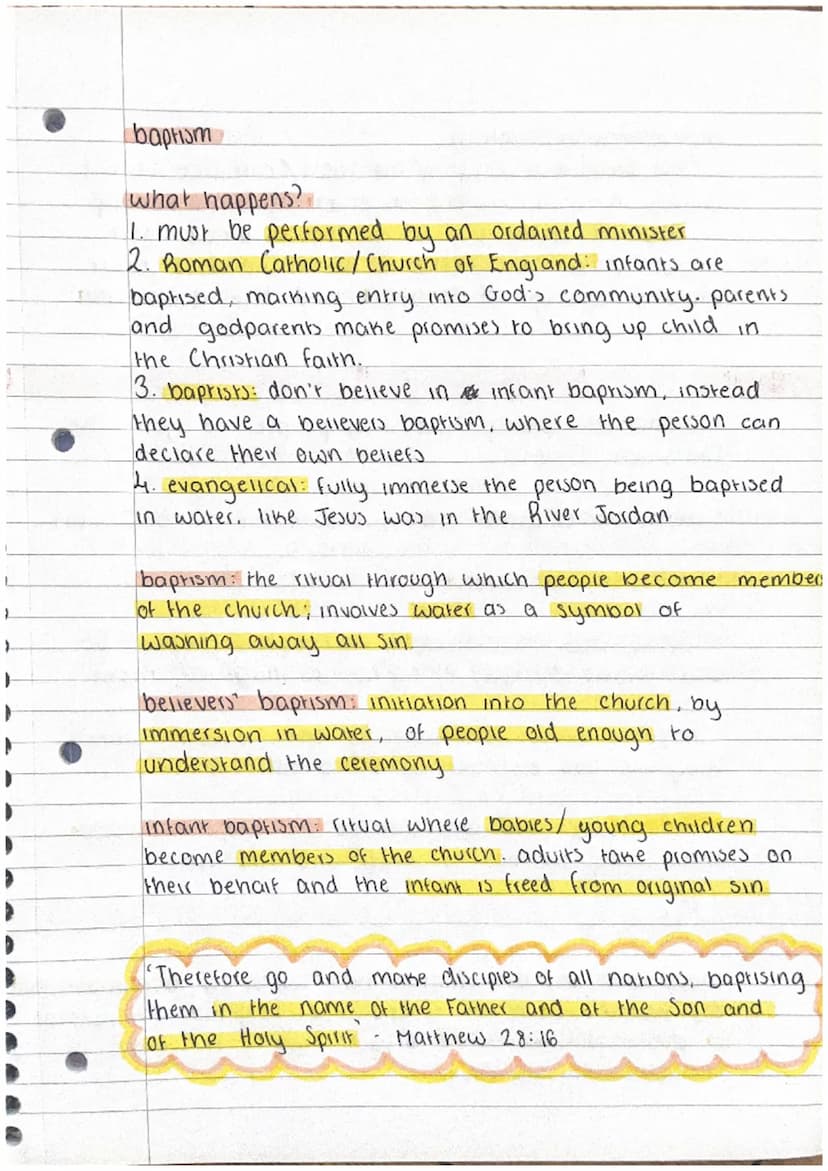 baptism
what happens?
1. must be performed by an ordained minister
2. Roman Catholic/Church of England: infants are
baptised, marking entry into God's community. parents
and godparents make promises to bring up child in
the Christian faith.
3. baptists: don't believe in infant baptism, instead
they have a believers baptism, where the person can
declare their own beliefs
4. evangelical: fully immerse the person being baptised
in water. like Jesus was in the River Jordan
baptism: the ritual through which people become member
of the church; involves water as a symbol of
washing away all sin.
believers' baptism: initiation into the church, by
immersion in water, of people old enough to
understand the ceremony
infant baptism: ritual where babies/ young children
become members of the church. adults take promises on
their behalf and the infant is freed from original sin
'Therefore go and make disciples of all nations, baptising
them in the name of the Father and of the Son and
of the Holy Spirit' - Matthew 28:16